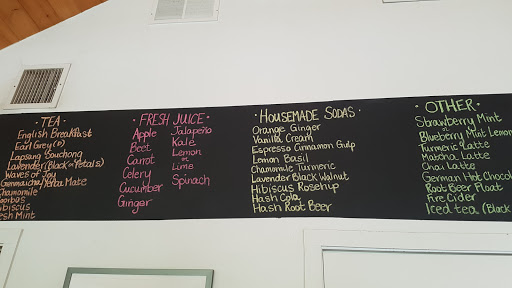 · TEA ·
English Breakfast
Earl Grey (D)
Lapsang Souchong
Lavender (Black or Petals)
Waves of Joy
Genmaicha/Yerba Mate
Chamomile
Rooibos
Hibiscus
esh Mint
· FRESH JUICE ·
Apple
Beet
Carrot
Celery
Cucumber
Ginger
Jalapeño
Kale
Lemon
or
Lime
Spinach
· HOUSEMADE SODAS ·
Orange Ginger
Vanilla Cream
Espresso Cinnamon Gulp
Lemon Basil
Chamomile Turmeric
Lavender Black Walnut
Hibiscus Rosehip
Hash Cola
Hash Root Beer
· OTHER ·
Strawberry Mint
or
Blueberry Mint Lemon
Turmeric Latte
Matcha Latte
Chai Latte
German Hot Chocol
Root Beer Float
Fire Cider
Iced tea (Black